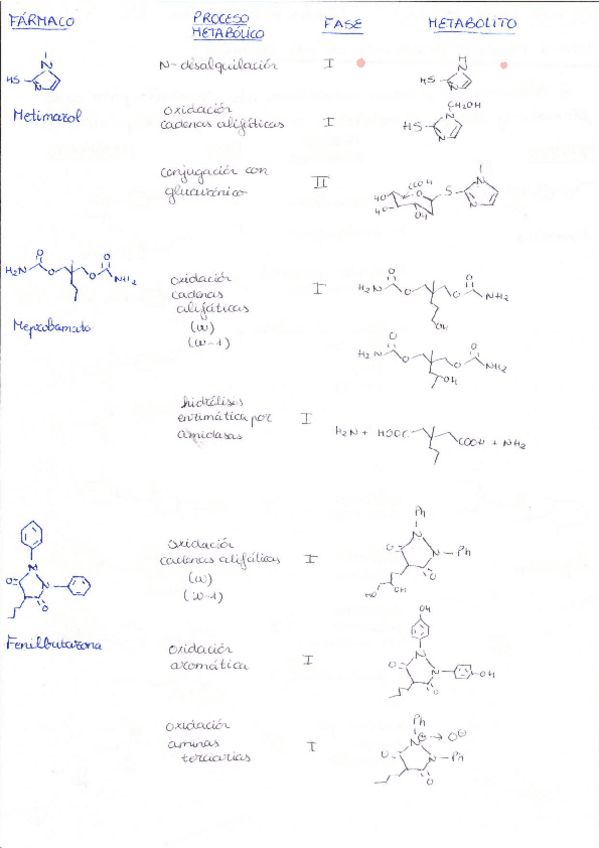 FÁRMACO
PROCESO
METABÓLICO
FASE
METABOLITO
HS
N
N
N-desalquilación
I
HS
H
N
N
Metimazol
oxidación
cadenas alifáticas
I
CH2OH
HS
N
N
conjugación con
glucurónico
II
COOH
HO
HO
O
OH
S
N
N
H2N
O
O
O
O
NH2
Meprobamato
oxidación
cadenas
alifáticas
(w)
(w-1)
I
H2N
O
O
O
O
NH2
OH
H2N
O
O
O
O
NH2
OH
hidrólisis
enzimática por
amidasas
I
H2N + HOOC
COOH + NH2
N
N
O
O
Fenilbutazona
oxidación
cadenas alifáticas
(w)
(w-1)
I
Ph
N
N-Ph
O
O
HO
OH
oxidación
aromática
I
OH
N
N
OH
O
O
oxidación
aminas
terciarias
I
Ph
N⊕→O⊖
N-Ph
O
O